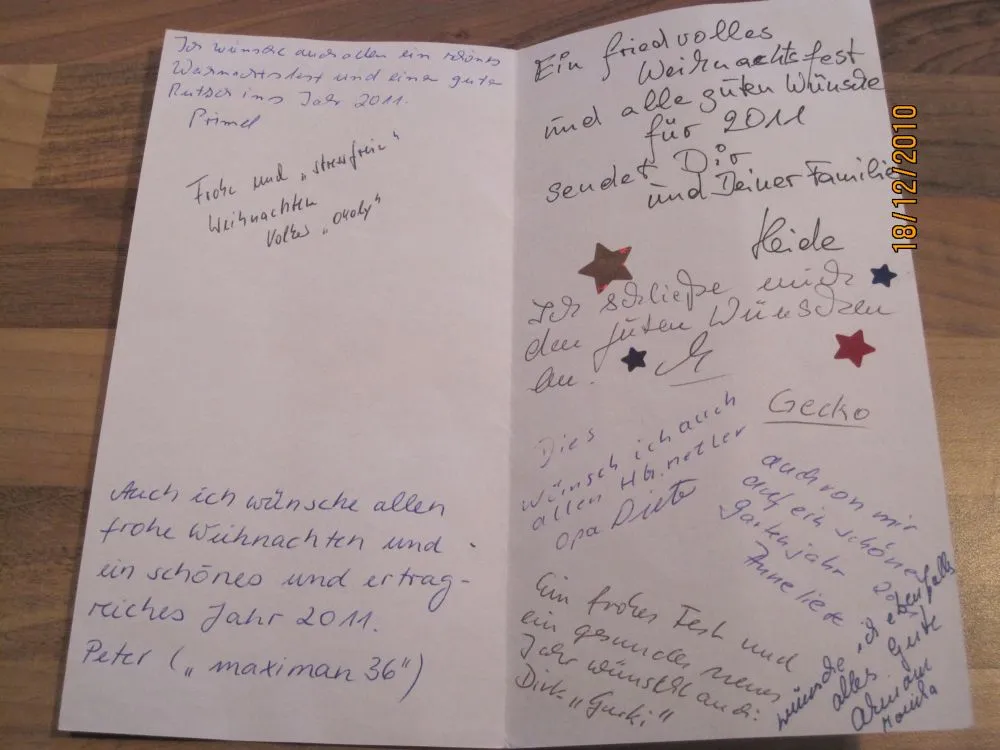 Ich wünsche auch allen ein schönes
Weihnachtsfest und einen guten
Rutsch ins Jahr 2011.
Primel
Frohe und „stressfreie“
Weihnachten
Volker
Auch ich wünsche allen
frohe Weihnachten und
ein schönes und ertrag-
reiches Jahr 2011.
Peter („maximan 36“)
Ein friedvolles
Weihnachtsfest
und alle guten Wünsche
für 2011
sendet Dir
und Deiner Familie
Heide
Ich schließe mich
den guten Wünschen
an.
Gecko
Dies
wünsch ich auch
allen HG.netler
Opa Dieter
auch von mir
auf ein schönes
Gartenjahr
Anneliese
Ein frohes Fest und
ein gesundes neues
Jahr wünscht
Dirk „Gurki“
wünsche ich ebenfalls
alles Gute
Monika
18/12/2010